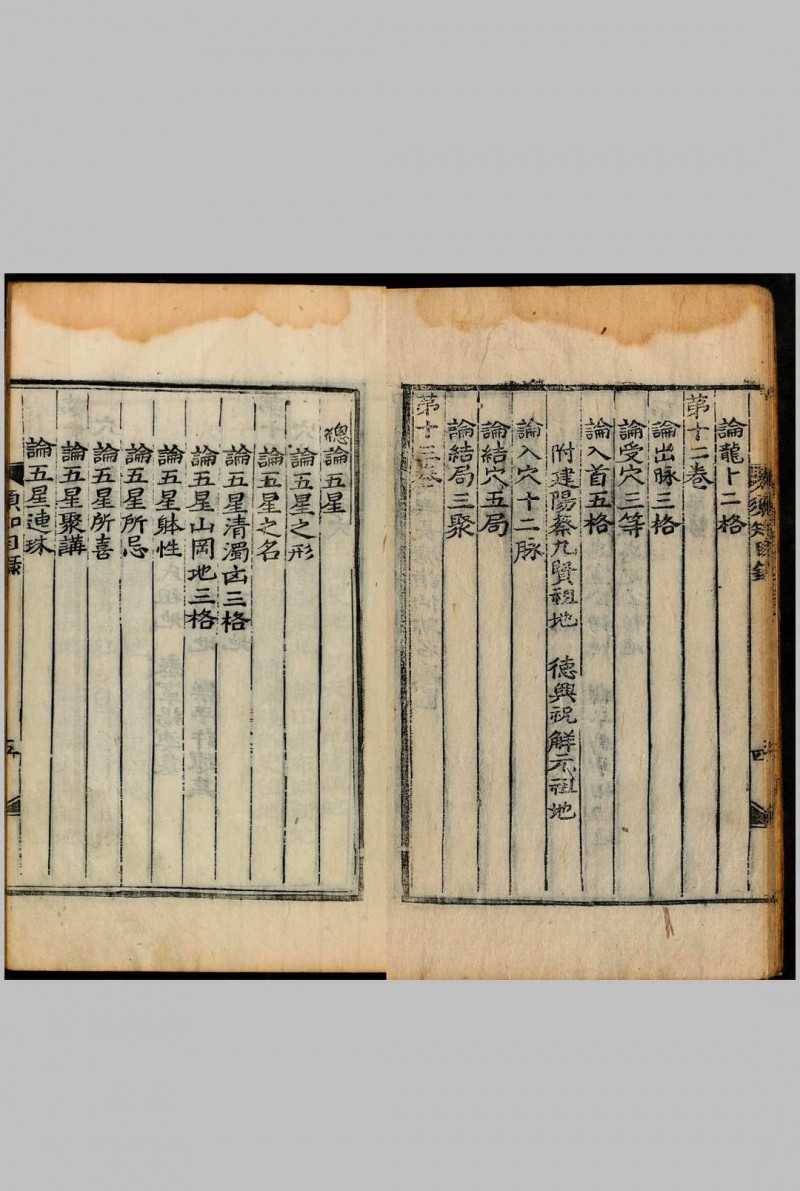 論龍十二格
第十二卷
論出脉三格
論受穴三等
論入首五格
附建陽蔡九賢祖地　德興祝解元祖地
論入穴十二脉
論結穴五局
論結局三聚
第十三卷
總論五星
論五星之形
論五星之名
論五星清濁凶三格
論五星山岡地三格
論五星躰性
論五星所忌
論五星所喜
論五星聚講
論五星連珠